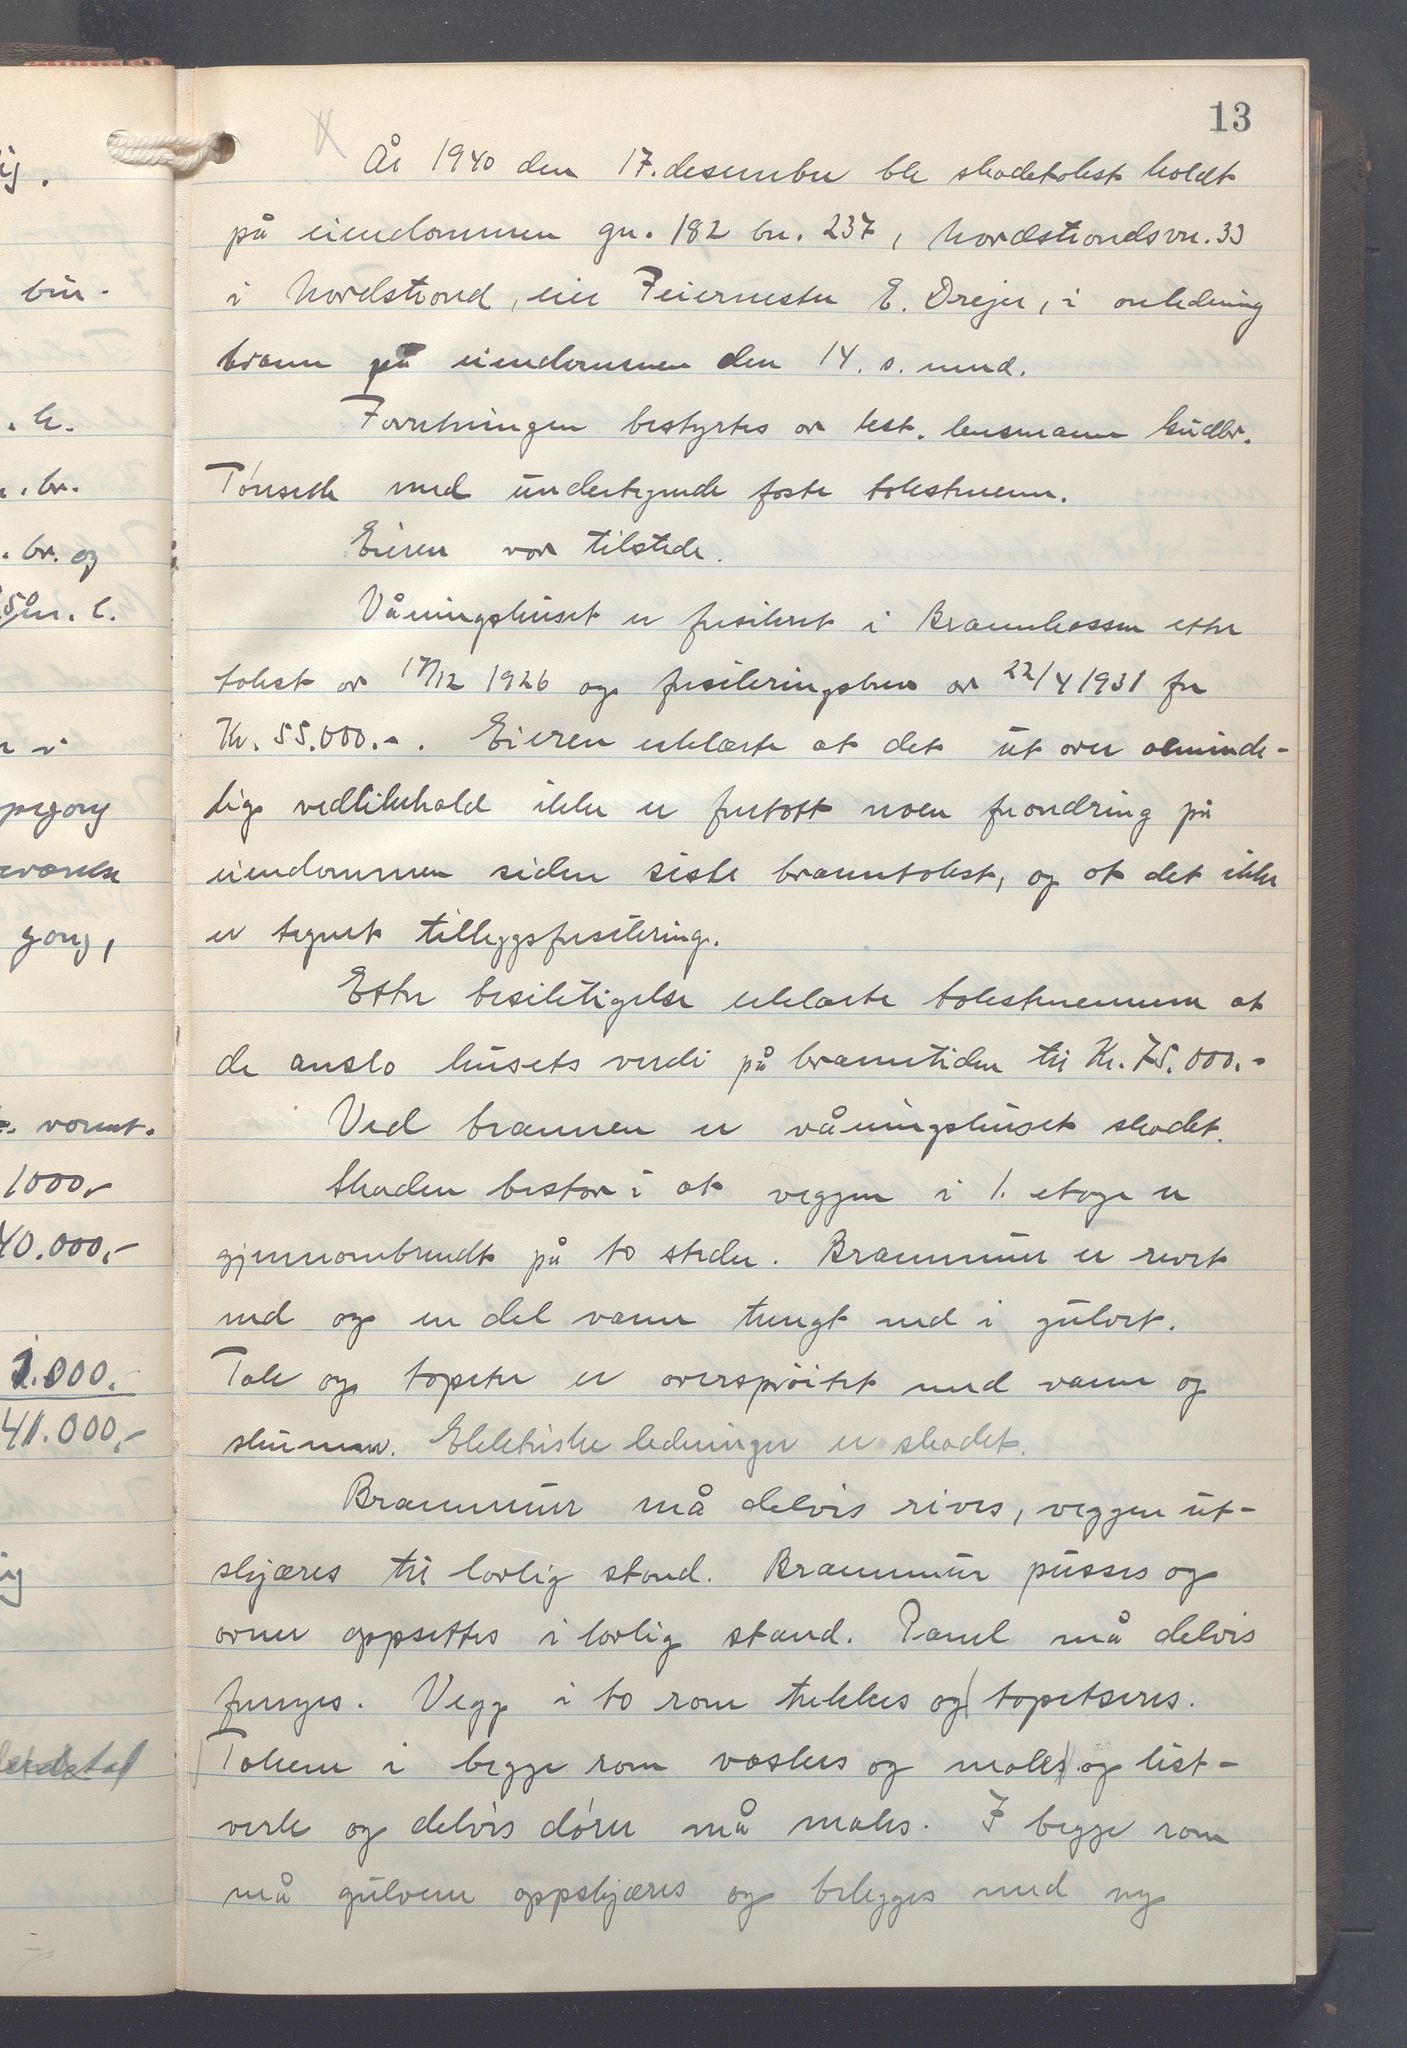 13
År 1940 den 17. desember ble skadetakst holdt
på eiendommen gn. 182 bn. 237, Nordstrandsvn. 33
i Nordstrand, eier Feiermester E. Drejer, i anledning
brann på eiendommen den 14. s. mnd.
Forretningen bestyrtes av lensmann Gudbr.
Tønseth med undertegnede faste takstmenn.
Eieren var tilstede.
Våningshuset er forsikret i Brannkassen etter
takst av 17/12 1926 og forsikringsbrev av 22/4 1931 for
Kr. 55.000.-. Eieren erklærte at det ut over alminde-
lig vedlikehold ikke er foretatt noen forandring på
eiendommen siden siste branntakst, og at det ikke
er tegnet tilleggsforsikring.
Etter besiktigelse erklærte takstmennene at
de anslo husets verdi på branntiden til Kr. 75.000.-
Ved brannen er våningshuset skadet.
Skaden består i at veggen i 1. etage er
gjennombrendt på to steder. Brannmur er revet
ned og en del vann trengt ned i gulvet.
Tak og tapeter er oversprøitet med vann og
skummer. Elektriske ledninger er skadet.
Brannmur må delvis rives, veggen ut-
skjæres til lovlig stand. Brannmur pusses og
ovner oppsettes i lovlig stand. Panel må delvis
fornyes. Vegg i to rom trekkes og tapetseres.
Takene i begge rom vaskes og males og list-
verk og delvis dører må males. I begge rom
må gulvene oppskjæres og belegges med ny
ig.
bin.
. k.
. br.
. br. og
. l.
gang,
1000,-
40.000,-
1.000.
41.000,-